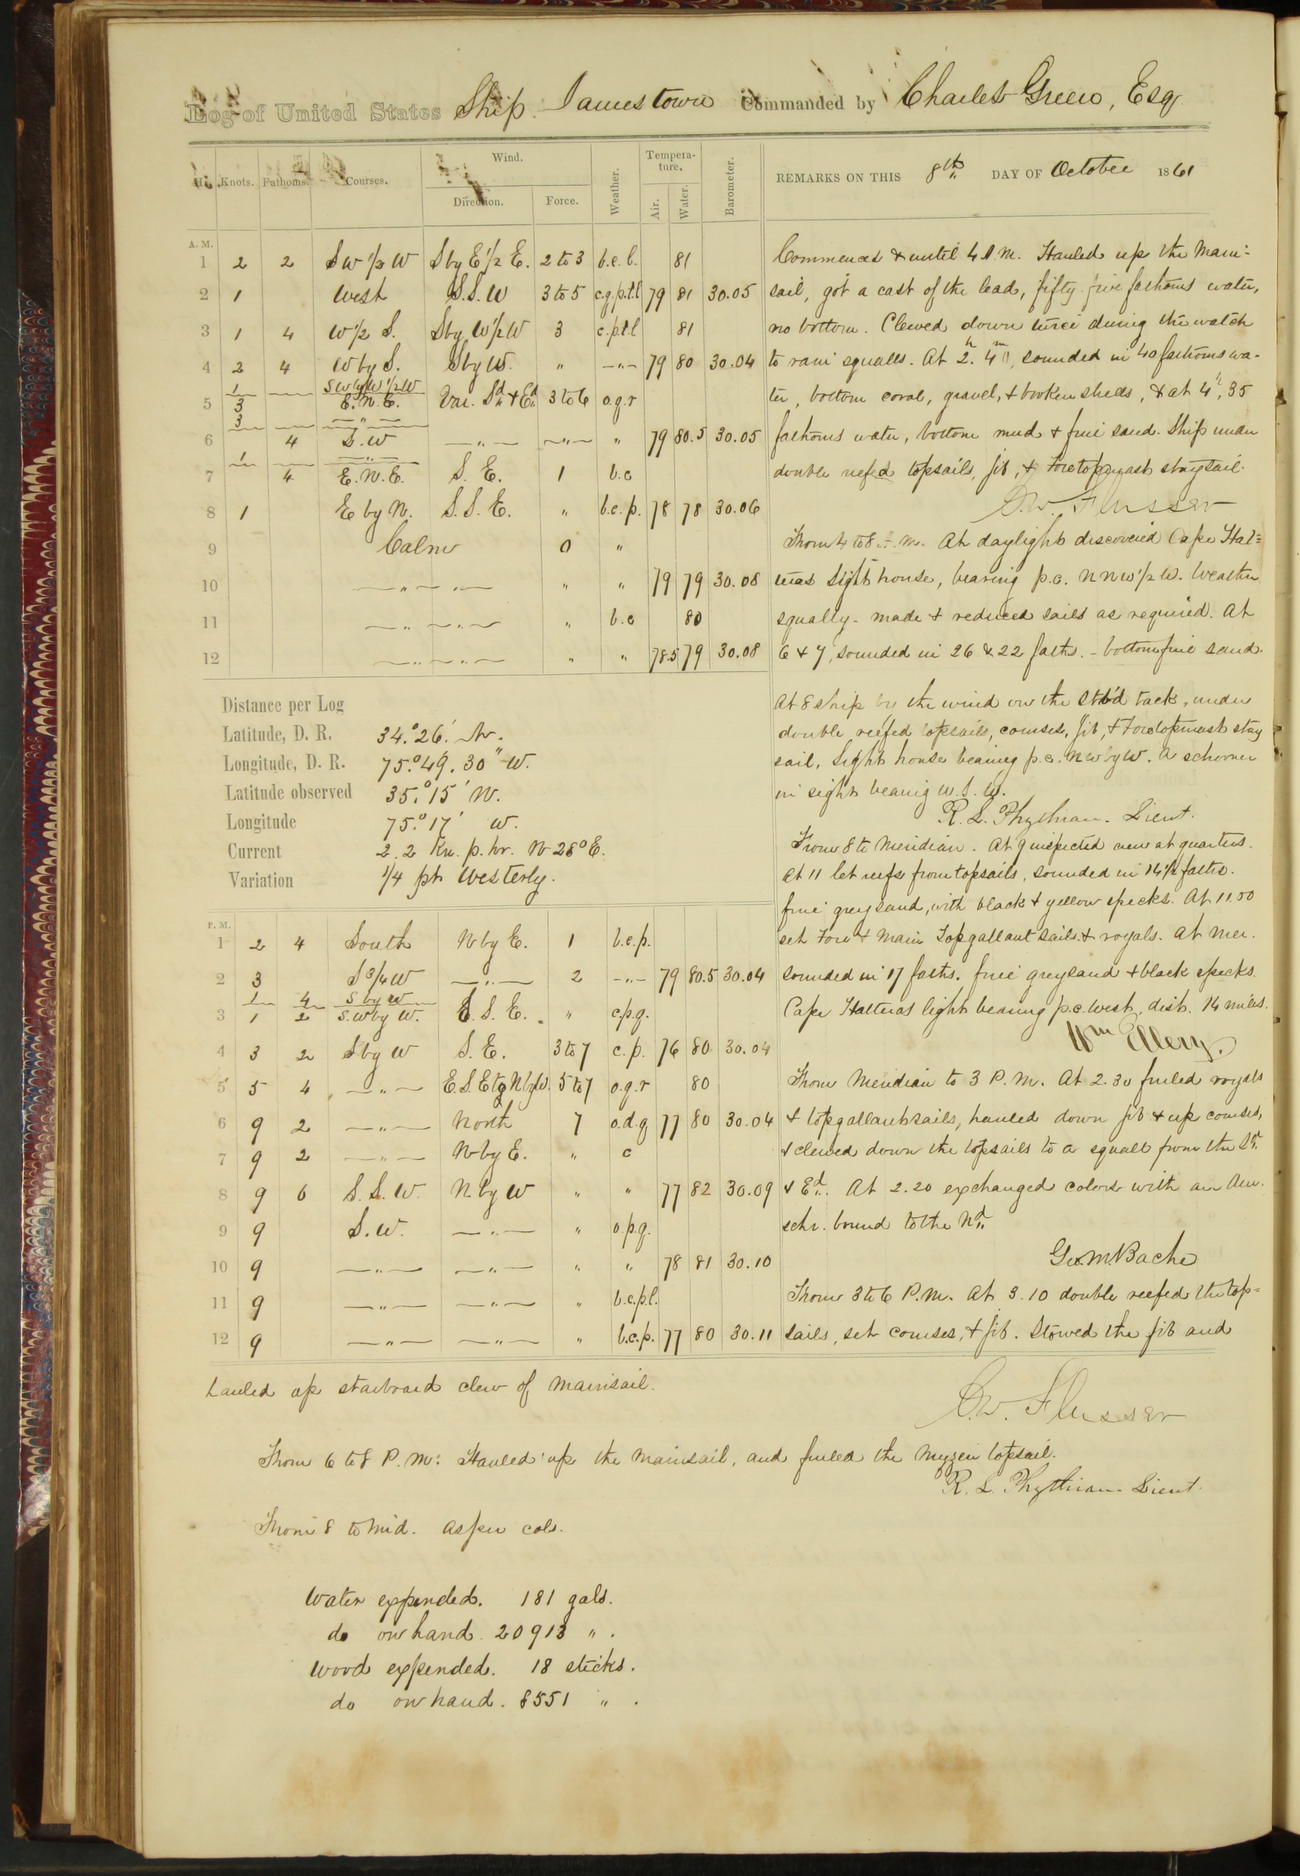 Log of United States Ship Jamestown Commanded by Charles Green, Esq
H. Knots. Fathoms. Courses. Wind. Direction. Force. Weather. Temperature. Air. Water. Barometer.
REMARKS ON THIS 8th DAY OF October 1861
A. M.
1 2 2 SW 1/2 W S by E 1/2 E. 2 to 3 b.c.l. 81
2 1 West S.S.W 3 to 5 c.q.p.t.l 79 81 30.05
3 1 4 W 1/2 S. S by W 1/2 W 3 c.p.t.l 81
4 2 4 W by S. S by W. " —"— 79 80 30.04
1 SW by W 1/2 W
5 3 E.N.E. Var. Sd & Ed 3 to 6 o.q.r
3 —"—
6 4 S.W —"— —"— " 79 80.5 30.05
1 —"—
7 4 E.N.E. S. E. 1 b.c
8 1 E by N. S.S.E. " b.c.p. 78 78 30.06
9 Calm 0 "
10 —"— —"— " " 79 79 30.08
11 —"— —"— " b.c 80
12 —"— —"— " " 78.5 79 30.08
Commences & until 4 A.M. Hauled up the main-
sail, got a cast of the lead, fifty five fathoms water,
no bottom. Clewed down twice during the watch
to rain squalls. At 2h. 40m, sounded in 40 fathoms wa-
ter, bottom coral, gravel, & broken shells, & at 4h, 35
fathoms water, bottom mud & fine sand. Ship under
double reefed topsails, jib, & Foretopmast staysail.
C.W. Flusser
From 4 to 8 A.M. At daylight discovered Cape Hat=
teras Light house, bearing p.c. NNW 1/2 W. Weather
squally - made & reduced sails as required. At
6 & 7, sounded in 26 & 22 faths. - bottom fine sand.
At 8 ship by the wind on the stb'd tack, under
double reefed topsails, courses, jib, & Foretopmast stay
sail, Light house bearing p.c. NW by W. A schooner
in sight bearing W.S.W.
R. L. Phythian. Lieut.
Distance per Log
Latitude, D. R. 34.° 26.' N.
Longitude, D. R. 75.° 49. 30" W.
Latitude observed 35.° 15' N.
Longitude 75.° 17' W.
Current 2.2 Kn. p. hr. N 28° E.
Variation 1/4 pt. Westerly.
From 8 to Meridian. At 9 inspected crew at quarters.
At 11 let reefs from topsails, sounded in 14 1/2 faths.
fine grey sand, with black & yellow specks. At 11.50
set Fore & Main Topgallant sails & royals. At Mer.
sounded in 17 faths. fine grey sand & black specks.
Cape Hatteras light bearing p.c. West, dist. 14 miles.
Wm Ellery.
P. M.
1 2 4 South N by E. 1 b.c.p.
2 3 S 3/4 W —"— 2 —"— 79 80.5 30.04
1 4 S by W
3 1 2 S.W by W. E.S.E. " c.p.q.
4 3 2 S by W S.E. 3 to 7 c.p. 76 80 30.04
5 5 4 —"— E.S.E to N by W. 5 to 7 o.q.r 80
6 9 2 —"— North 7 o.d.q 77 80 30.04
7 9 2 —"— N by E. " c
8 9 6 S.S.W. N. by W " " 77 82 30.09
9 9 S.W. —"— " o.p.q.
10 9 —"— —"— " " 78 81 30.10
11 9 —"— —"— " b.c.p.l.
12 9 —"— —"— " b.c.p. 77 80 30.11
From Meridian to 3 P.M. At 2.30 furled royals
& topgallantsails, hauled down jib & up courses,
& clewed down the topsails to a squall from the Sd.
& Ed. At 2.20 exchanged colors with an Am.
schr. bound to the Nd.
Geo. M Bache
From 3 to 6 P.M. At 3.10 double reefed the top=
sails, set courses, & jib. Stowed the jib and
hauled up starboard clew of mainsail.
C.W. Flusser
From 6 to 8 P.M: Hauled up the mainsail, and furled the Mizzen topsail.
R. L. Phythian. Lieut.
From 8 to Mid. As per cols.
Water expended. 181 gals.
do on hand. 20913 " .
Wood expended. 18 sticks.
do on hand. 8551 " .